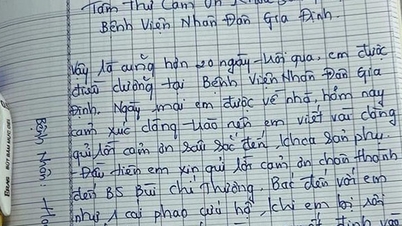 Tâm Thư Cảm Ơn Khoa
Bệnh Viện Nhân Dân Gia Định.
Vậy là cũng hơn 20 ngày trôi qua, em được
điều dưỡng tại Bệnh Viện Nhân Dân Gia
Định. Ngày mai em được về nhà, hôm nay
cảm xúc dâng trào nên em viết vài dòng
gửi lời cảm ơn sâu sắc đến khoa sản phụ.
Đầu tiên em xin gửi lời cảm ơn chân thành
đến BS Bùi Chí Thường. Bác đến với em
như 1 cái phao cứu hộ, khi em bị rơi
Bệnh Nhân: